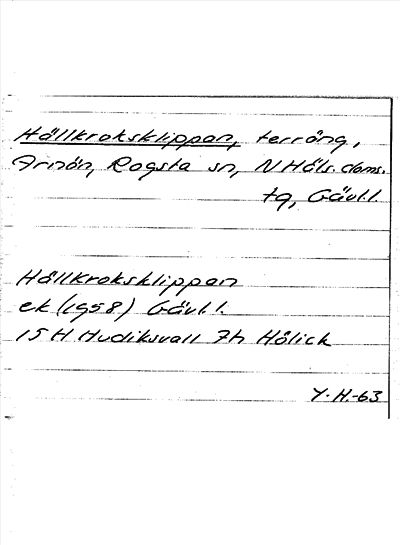 Hällkroksklippan, terräng,
Arnön, Rogsta sn, N Häls. doms.
tg, Gävl.l.
Hällkroksklippan
ek (1958) Gävl.l.
15 H Hudiksvall 7h Hölick
Y.H.-63